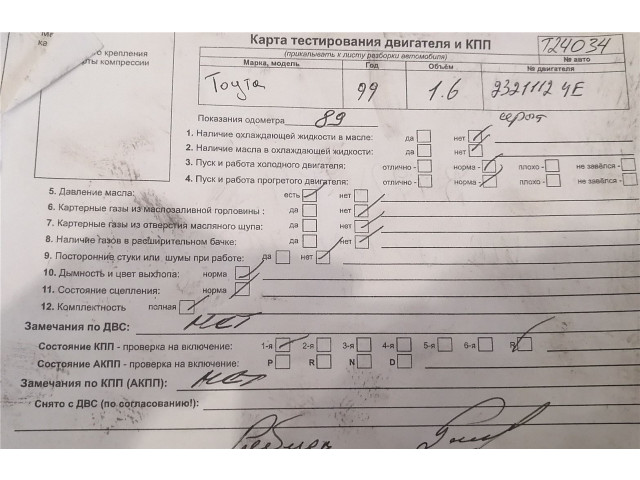 ка
о крепления
ты компрессии
Карта тестирования двигателя и КПП
(прикалывать к листу разборки автомобиля)
T24034
Марка, модель
Год
Объём
№ двигателя
№ авто
Тоута
99
1.6
Показания одометра 89
1. Наличие охлаждающей жидкости в масле: да нет
2. Наличие масла в охлаждающей жидкости: да нет
3. Пуск и работа холодного двигателя: отлично - норма - плохо - не завёлся -
4. Пуск и работа прогретого двигателя: отлично - норма - плохо - не завёлся -
5. Давление масла: есть нет
6. Картерные газы из маслозаливной горловины : да нет
7. Картерные газы из отверстия масляного щупа: да нет
8. Наличие газов в расширительном бачке: да нет
9. Посторонние стуки или шумы при работе: да нет
10. Дымность и цвет выхлопа: норма
11. Состояние сцепления: норма
12. Комплектность полная
Замечания по ДВС: нет
Состояние КПП - проверка на включение: 1-я 2-я 3-я 4-я 5-я 6-я R
Состояние АКПП - проверка на включение: P R N D
Замечания по КПП (АКПП): нет
Снято с ДВС (по согласованию!):